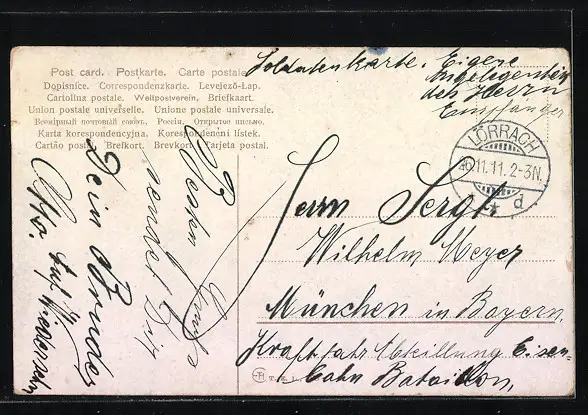 Post card. Postkarte. Carte postale
Dopisnice. Correspondenzkarte. Levelező-Lap.
Cartolina postale. Weltpostverein. Briefkaart.
Union postale universelle. Unione postale universale.
Всемірный почтовый союзъ. Россія. Открытое письмо.
Karta korespondencyjna. Korespondenční listek.
Cartão postal. Brefkort. Brevkort. Tarjeta postal.
Soldatenkarte. Eigene
Angelegenheit
des Herrn
Empfänger
LÖRRACH
11.11.2-3N.
* d
Herrn Sergt.
Wilhelm Meyer
München in Bayern.
Kraftfahr Abteilung Eisen-
bahn Batallon,
Besten Gruß
sendet Dir
Dein Bruder
Auf Wiedersehn